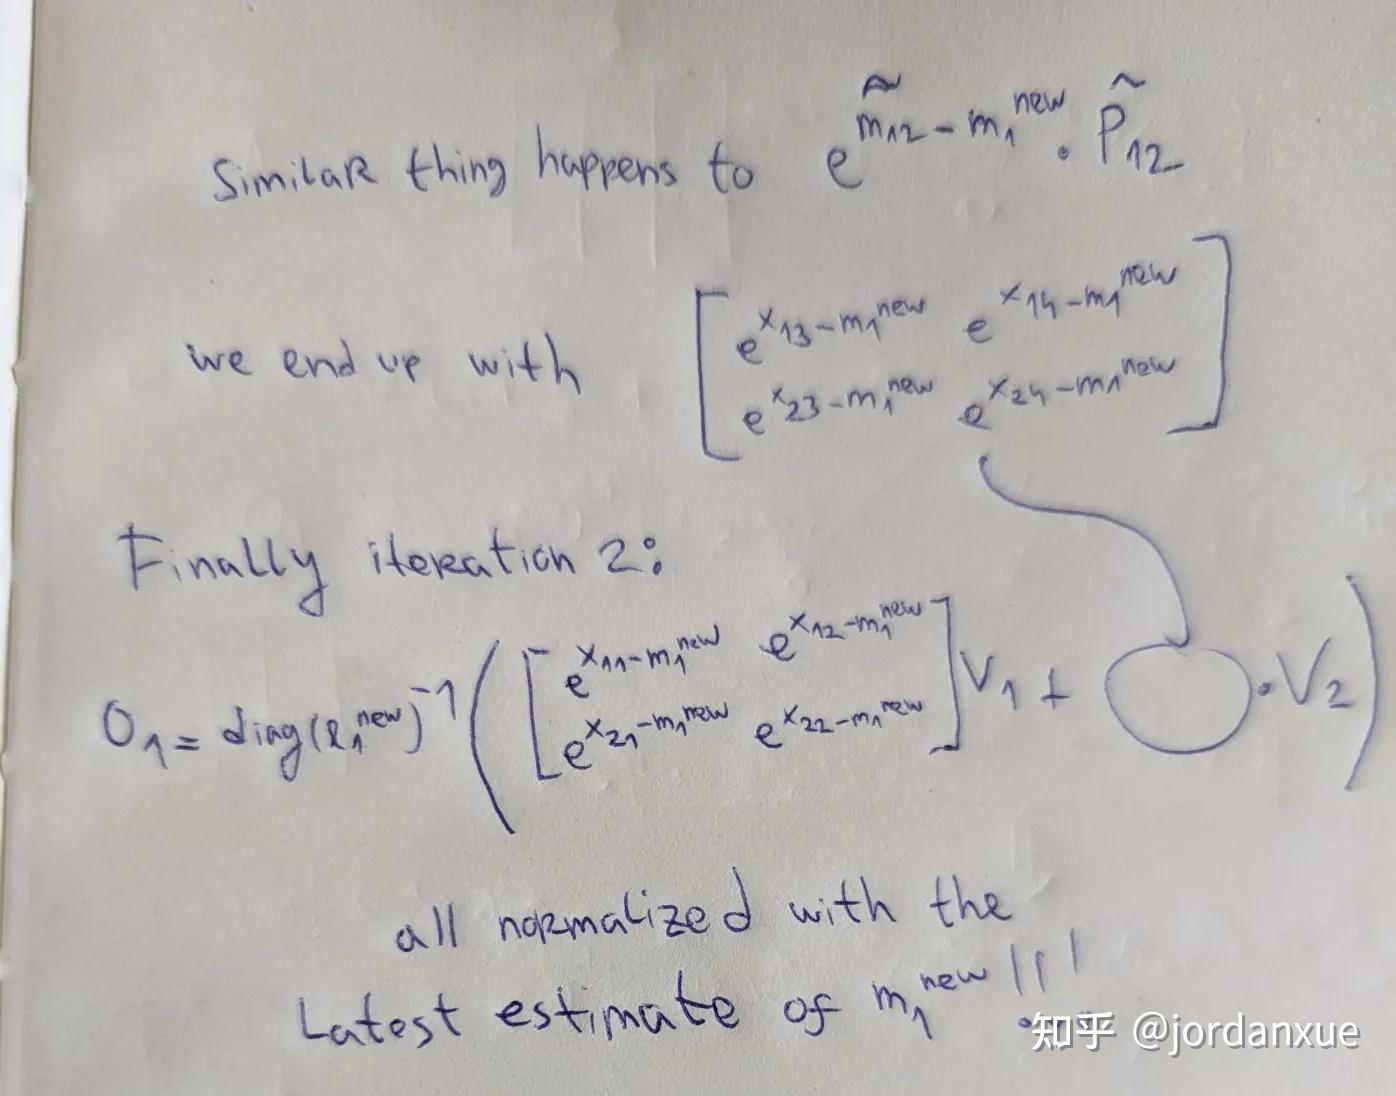 Similar thing happens to e^{m̃₁₂ - m₁^{new}} · P̃₁₂
we end up with [ e^{x₁₃ - m₁^{new}} e^{x₁₄ - m₁^{new}}
e^{x₂₃ - m₁^{new}} e^{x₂₄ - m₁^{new}} ]
Finally iteration 2:
O₁ = diag(l₁^{new})^{-1} ( [ e^{x₁₁ - m₁^{new}} e^{x₁₂ - m₁^{new}}
e^{x₂₁ - m₁^{new}} e^{x₂₂ - m₁^{new}} ] V₁ + · V₂ )
all normalized with the
Latest estimate of m₁^{new} !!!
知乎 @jordanxue